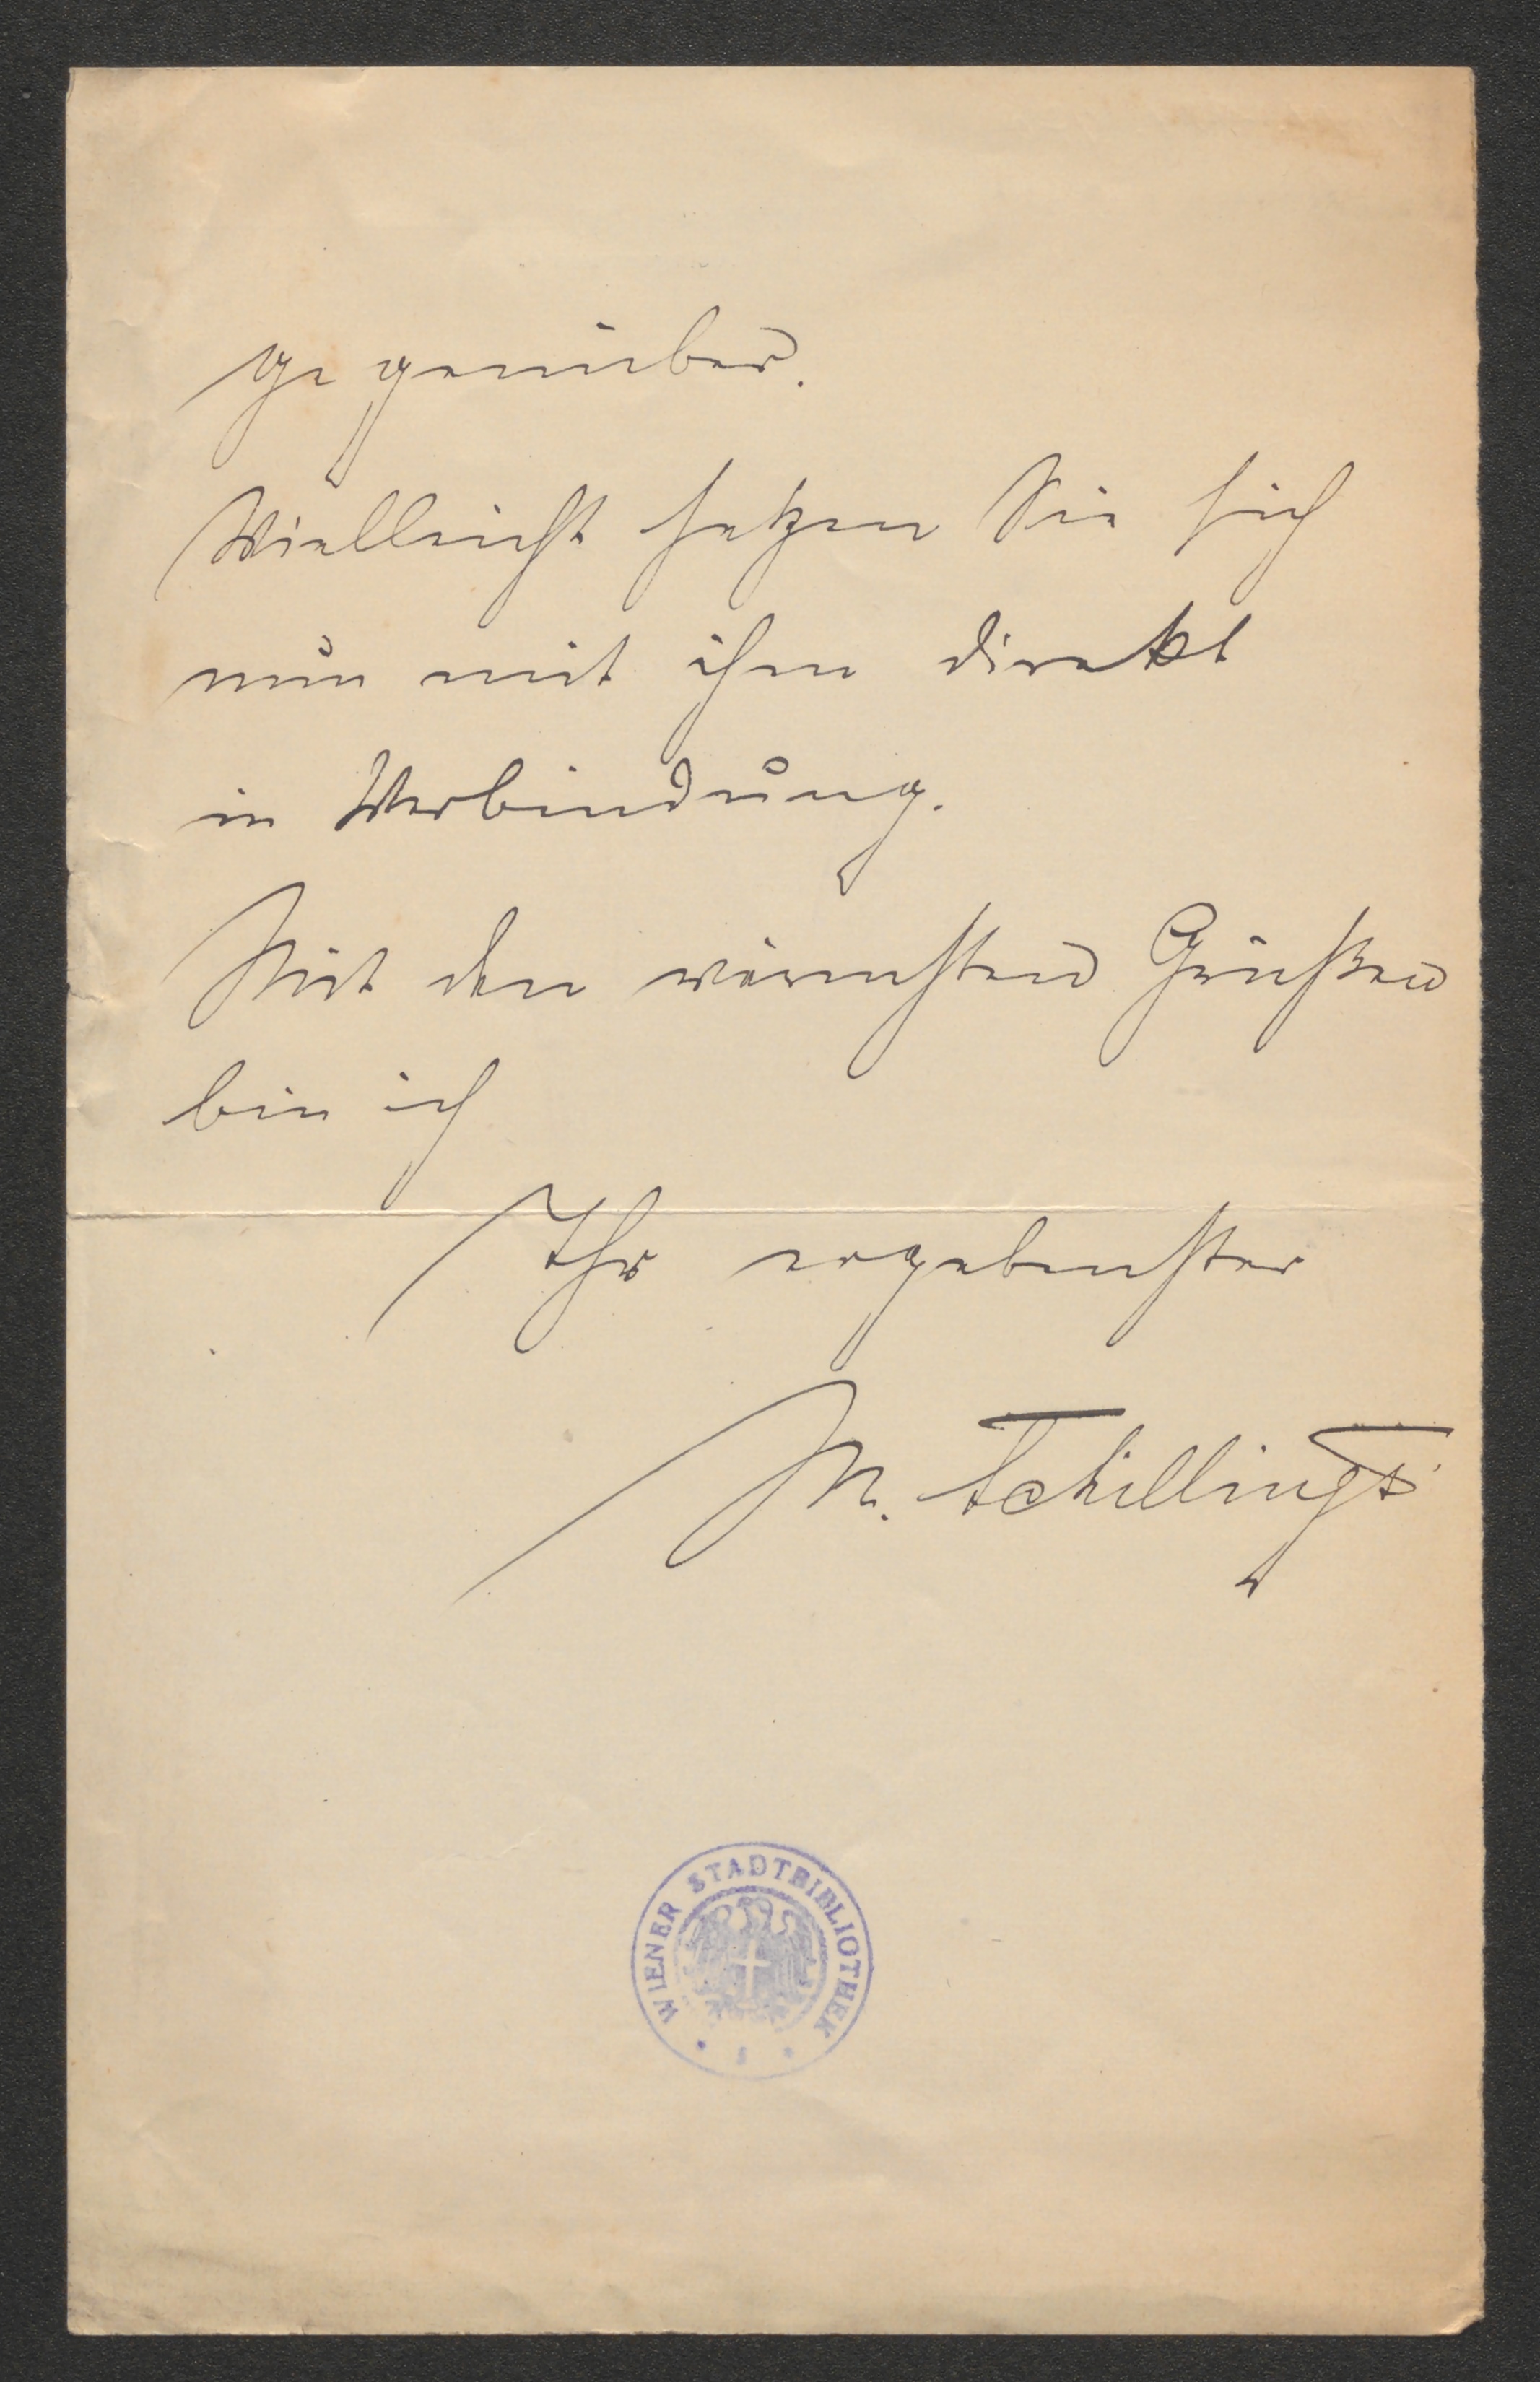 gegenüber.
Vielleicht setzen Sie sich
nun mit ihm direkt
in Verbindung.
Mit den wärmsten Grüßen
bin ich
Ihr ergebenster
M. Schillings
WIENER STADTBIBLIOTHEK